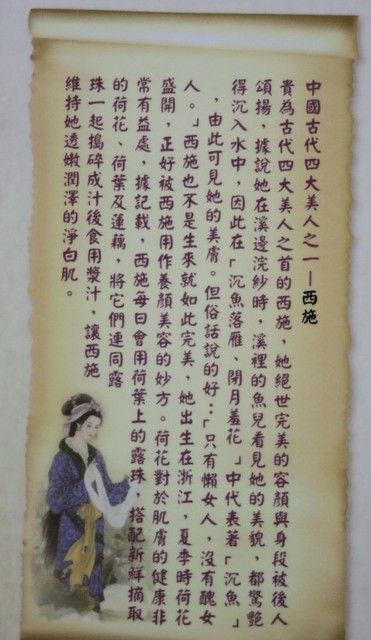 中國古代四大美人之一—西施
貴為古代四大美人之首的西施，她絕世完美的容顏與身段被後人
頌揚，據說她在溪邊浣紗時，溪裡的魚兒看見她的美貌，都驚艷
得沉入水中，因此在「沉魚落雁、閉月羞花」中代表著「沉魚」
，由此可見她的美膚。但俗話說的好：「只有懶女人，沒有醜女
人。」西施也不是生來就如此完美，她出生在浙江，夏季時荷花
盛開，正好被西施用作養顏美容的妙方。荷花對於肌膚的健康非
常有益處，據記載，西施每日會用荷葉上的露珠，搭配新鮮摘取
的荷花、荷葉及蓮藕，將它們連同露
珠一起搗碎成汁後食用漿汁，讓西施
維持她透嫩潤澤的淨白肌。